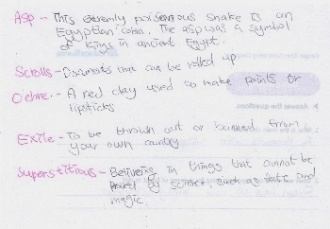 Asp - This extremly poisonous snake is an
Egyptian cobra. The asp was a symbol
of kings in ancient Egypt.
Scrolls - Documents can be rolled up
Ochre - A red clay used to make paints or
lipsticks
Exile - To be thrown out or banned from
your own country
Superstitious - Believing in things that cannot be
by science such as and
magic.